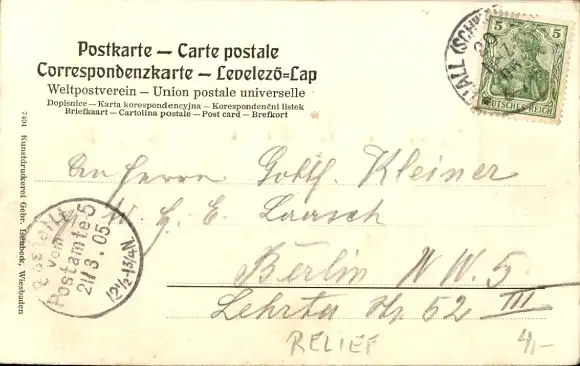 Postkarte — Carte postale
Correspondenzkarte — Levelező=Lap
Weltpostverein — Union postale universelle
Dopisnice — Karta korespondencyjna — Korespondenční listek
Briefkaart — Cartolina postale — Post card — Brefkort
5 5
DEUTSCHES REICH
HALL (SCHW
7404 Kunstdruckerei Gebr. Isenbeck, Wiesbaden
An Herrn Gottl. Kleiner
H. E. Laasch
Berlin N W. 5
Lehrter Str 52 III
vom
Postamte 5
21/3.05
12½-1¾N
RELIEF
4,-